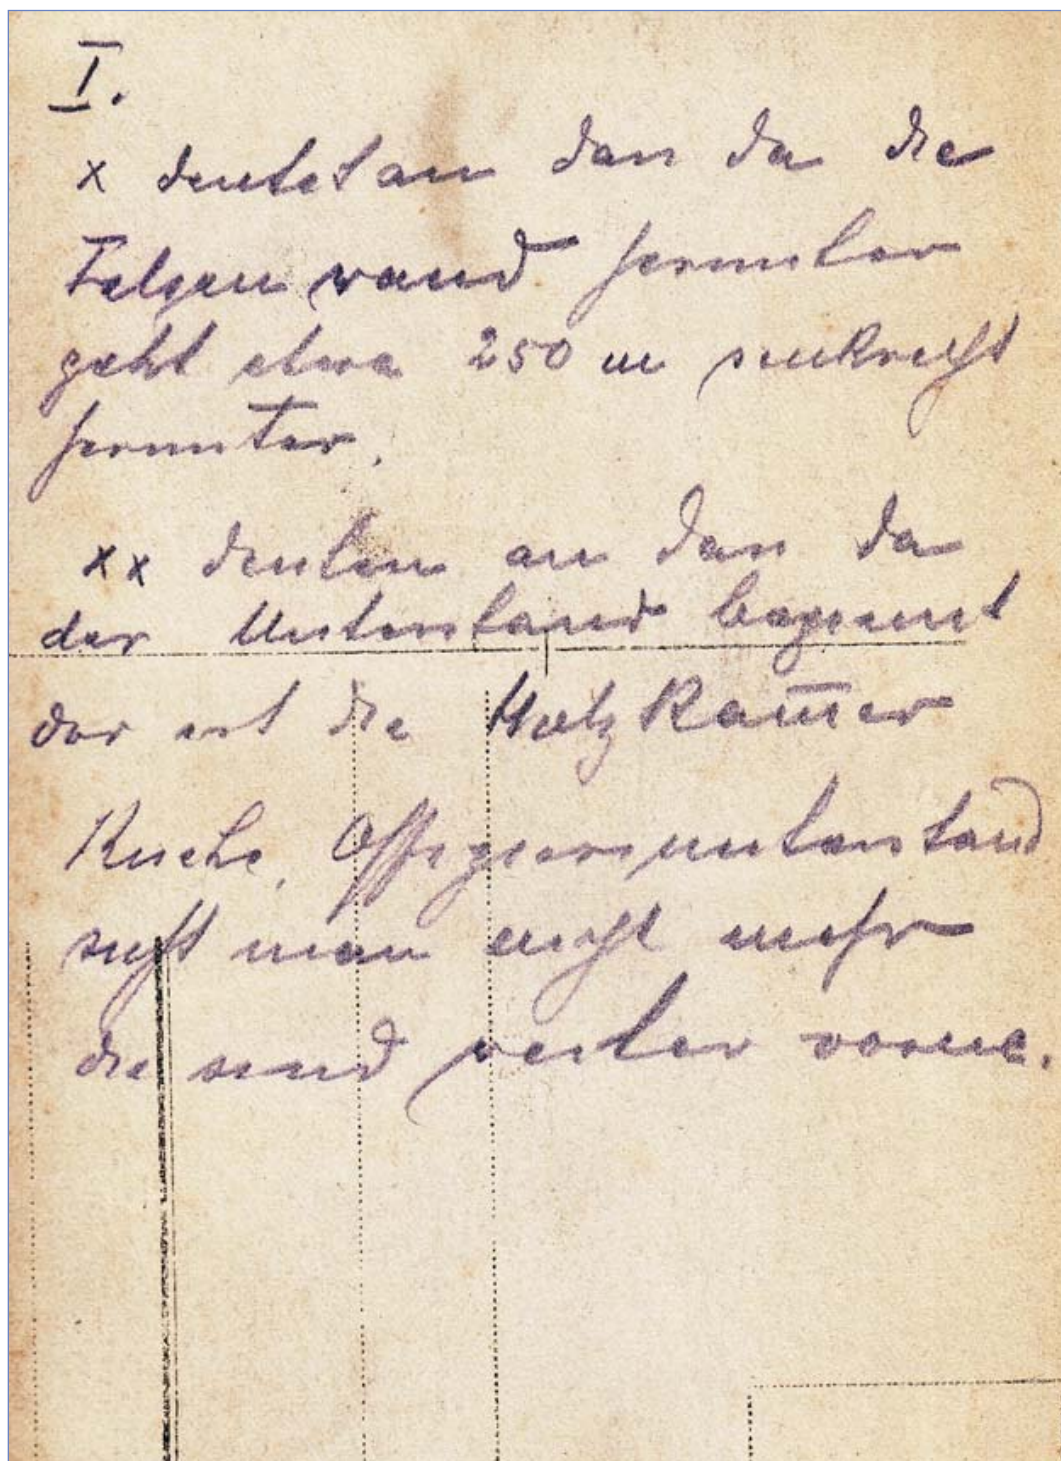 I.
x deutet an dan da die
Felsenwand herunter
geht etwa 250 m senkrecht
herunter.
xx deuten an dan da
der Unterstand begennt
dor ist die Holz Kam̅er
Kuche, Offiziersunterstand
sieht man nicht mehr
die sind weiter vorne.